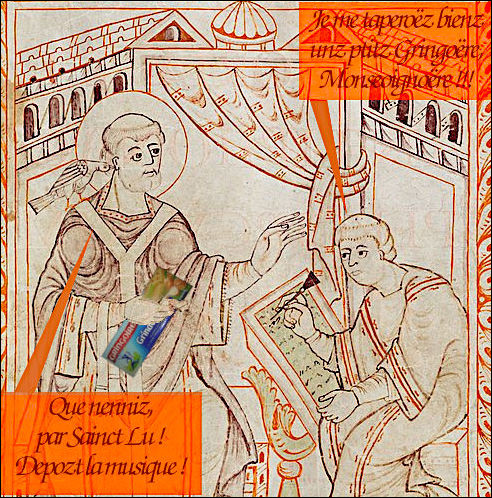 Je me taperoëz bienz
unz p'titz Gringoëre,
Monseoignoëre !!!
Que nenniz,
par Sainct Lu !
Depozt la musique !